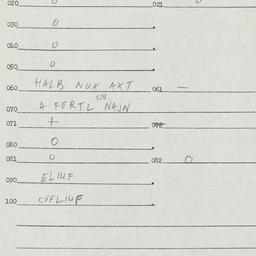 020. 0 021 0
030. 0
040. 0
050. 0
060. HALB NUX AXT 061 —
CIU
070. A FERTL NAJN
071. + 072
080. 0
081. 0 082 0
090. ELIUF
100. CVELIUF